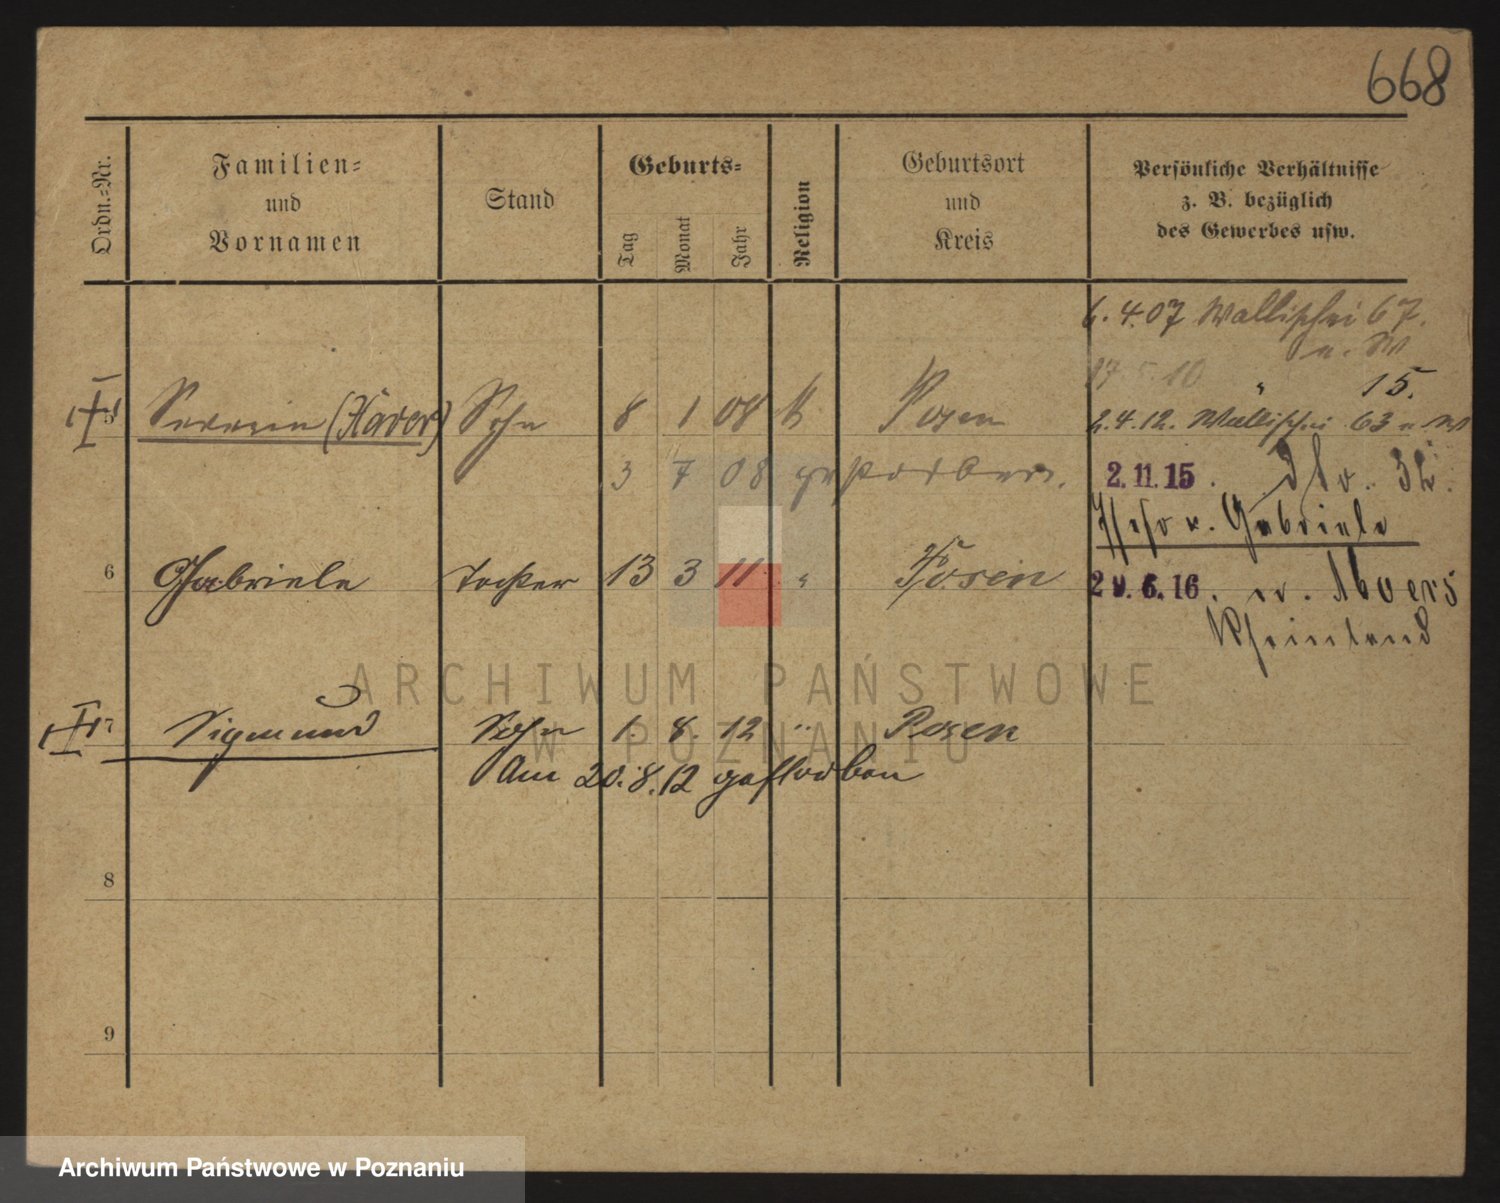 668
Ordn.-Nr.
Familien-
und
Vornamen
Stand
Geburts-
Tag
Monat
Jahr
Religion
Geburtsort
und
Kreis
Persönliche Verhältnisse
z. B. bezüglich
des Gewerbes usw.
6.4.07 Wallischei 67.
u. W
17 5 10 " 15.
5 Severin (Xaver) Sohn 8 1 08 k Posen
2.4.12. Wallischei 63 u W
3 7 08 gestorben.
2.11.15. dto. 32.
u. Gabriele
6 Gabriele Tochter 13 3 11 " Posen
29.6.16. n. Moers
Rheinland
7 Sigmund Sohn 1. 8. 12 " Posen
Am 20.8.12 gestorben
8
9
ARCHIWUM PAŃSTWOWE
W POZNANIU
Archiwum Państwowe w Poznaniu